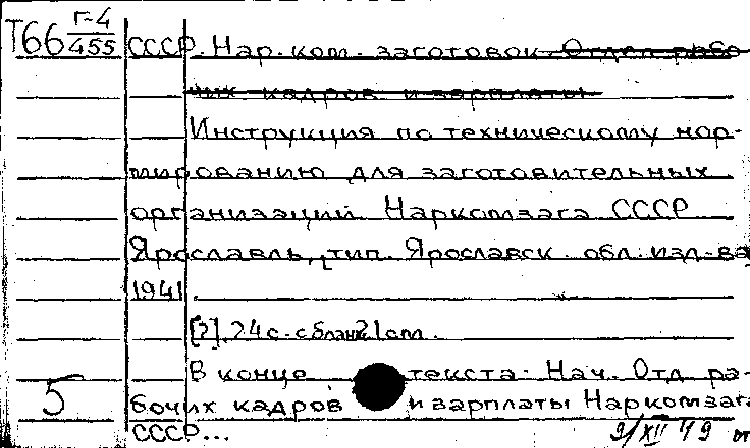 Т66 Г-4/455 СССР. Нар. ком. заготовок. Отдел рабо-
чих кадров и зарплаты.
Инструкция по техническому нор-
мированию для заготовительных
организаций Наркомзага СССР
Ярославль, тип. Ярославск. обл. изд-ва
1941.
[2], 24 с. с бланк. 21 см.
В конце текста: Нач. Отд ра-
5 бочих кадров и зарплаты Наркомзага
СССР...
9/XII 49